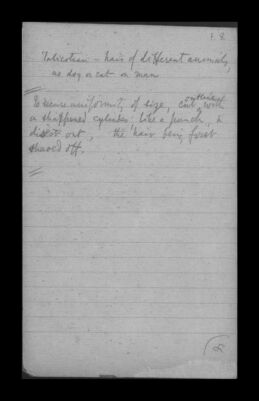 F. 8.
– hair of different animals,
as dog or cat or man
To secure uniformity of size, cut out with
a sharpened cylinder, like a punch, &
out, the hair being first
shaved off.